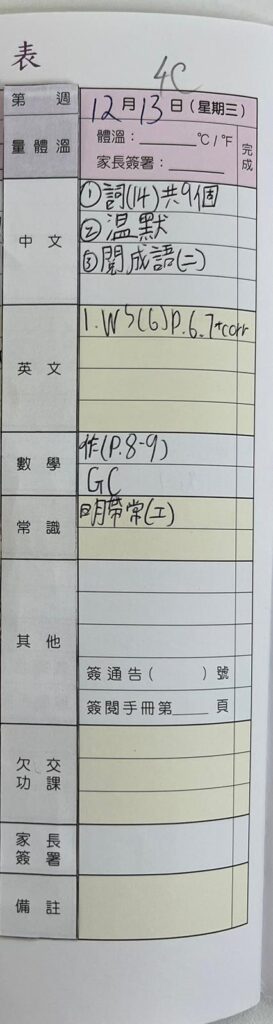 表
4C
第 週 12月13日(星期三)
量體溫 體溫：______℃/℉ 完成
家長簽署：______
中文 ①詞(14)共9個
②溫默
③閱成語(二)
英文 1. WS(6) P.6.7+corr
數學 作(P.8-9)
GC
常識 明帶常(工)
其他
簽通告( )號
簽閱手冊第____頁
欠交功課
家長簽署
備註